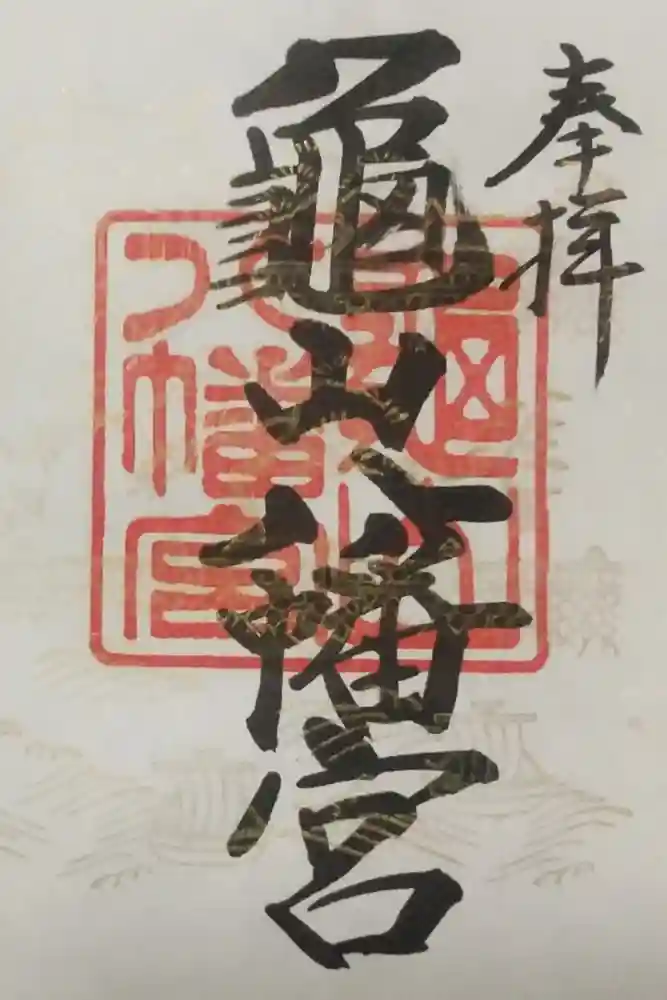 奉拝
龜山八幡宮
龜山八幡宮